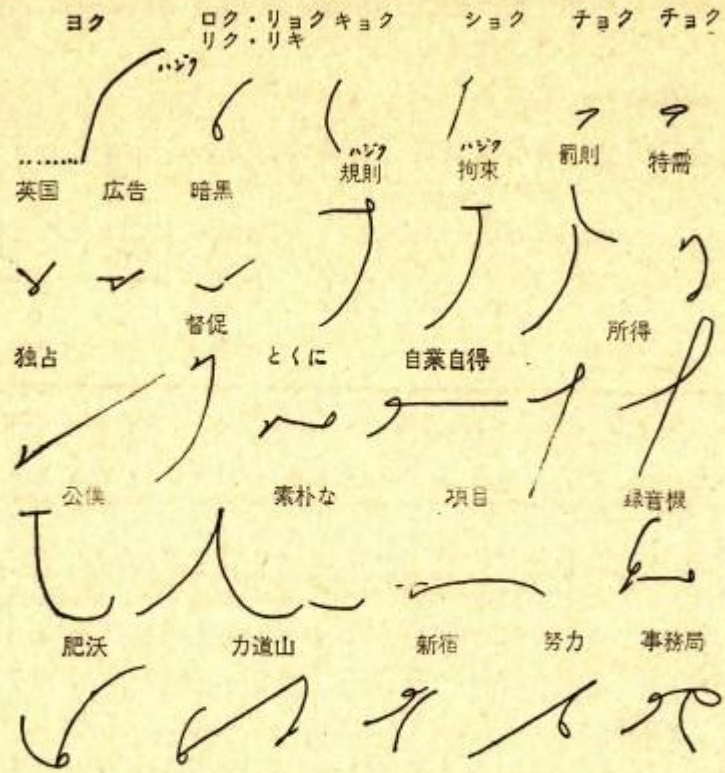 ヨク ロク・リョク キョク ショク チョク チョク
リク・リキ
ハジク
ハジク ハジク
英国 広告 暗黒 規則 拘束 罰則 特需
督促 所得
独占 とくに 自業自得
公僕 素朴な 項目 録音機
肥沃 力道山 新宿 努力 事務局